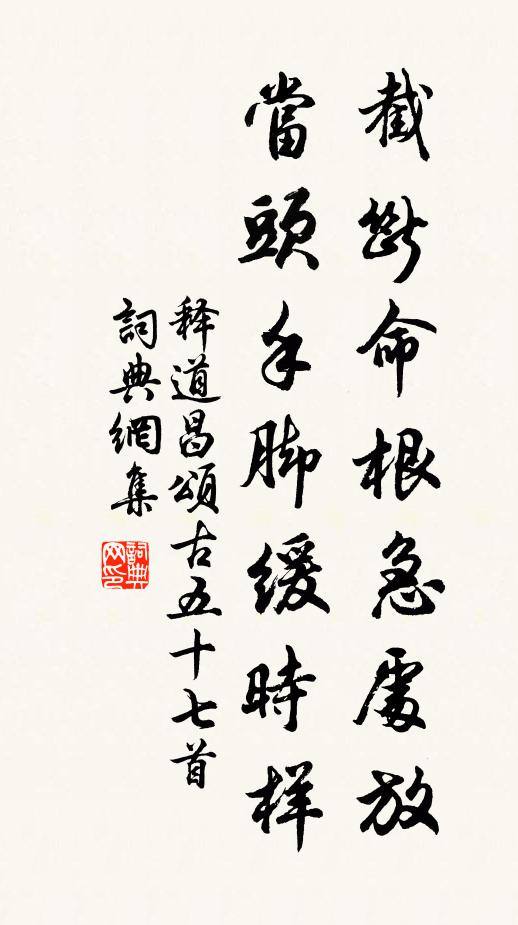 截斷命根急處放
當頭手脚緩時样
释道昌頌古五十七首
詞典網集
詞典
网印